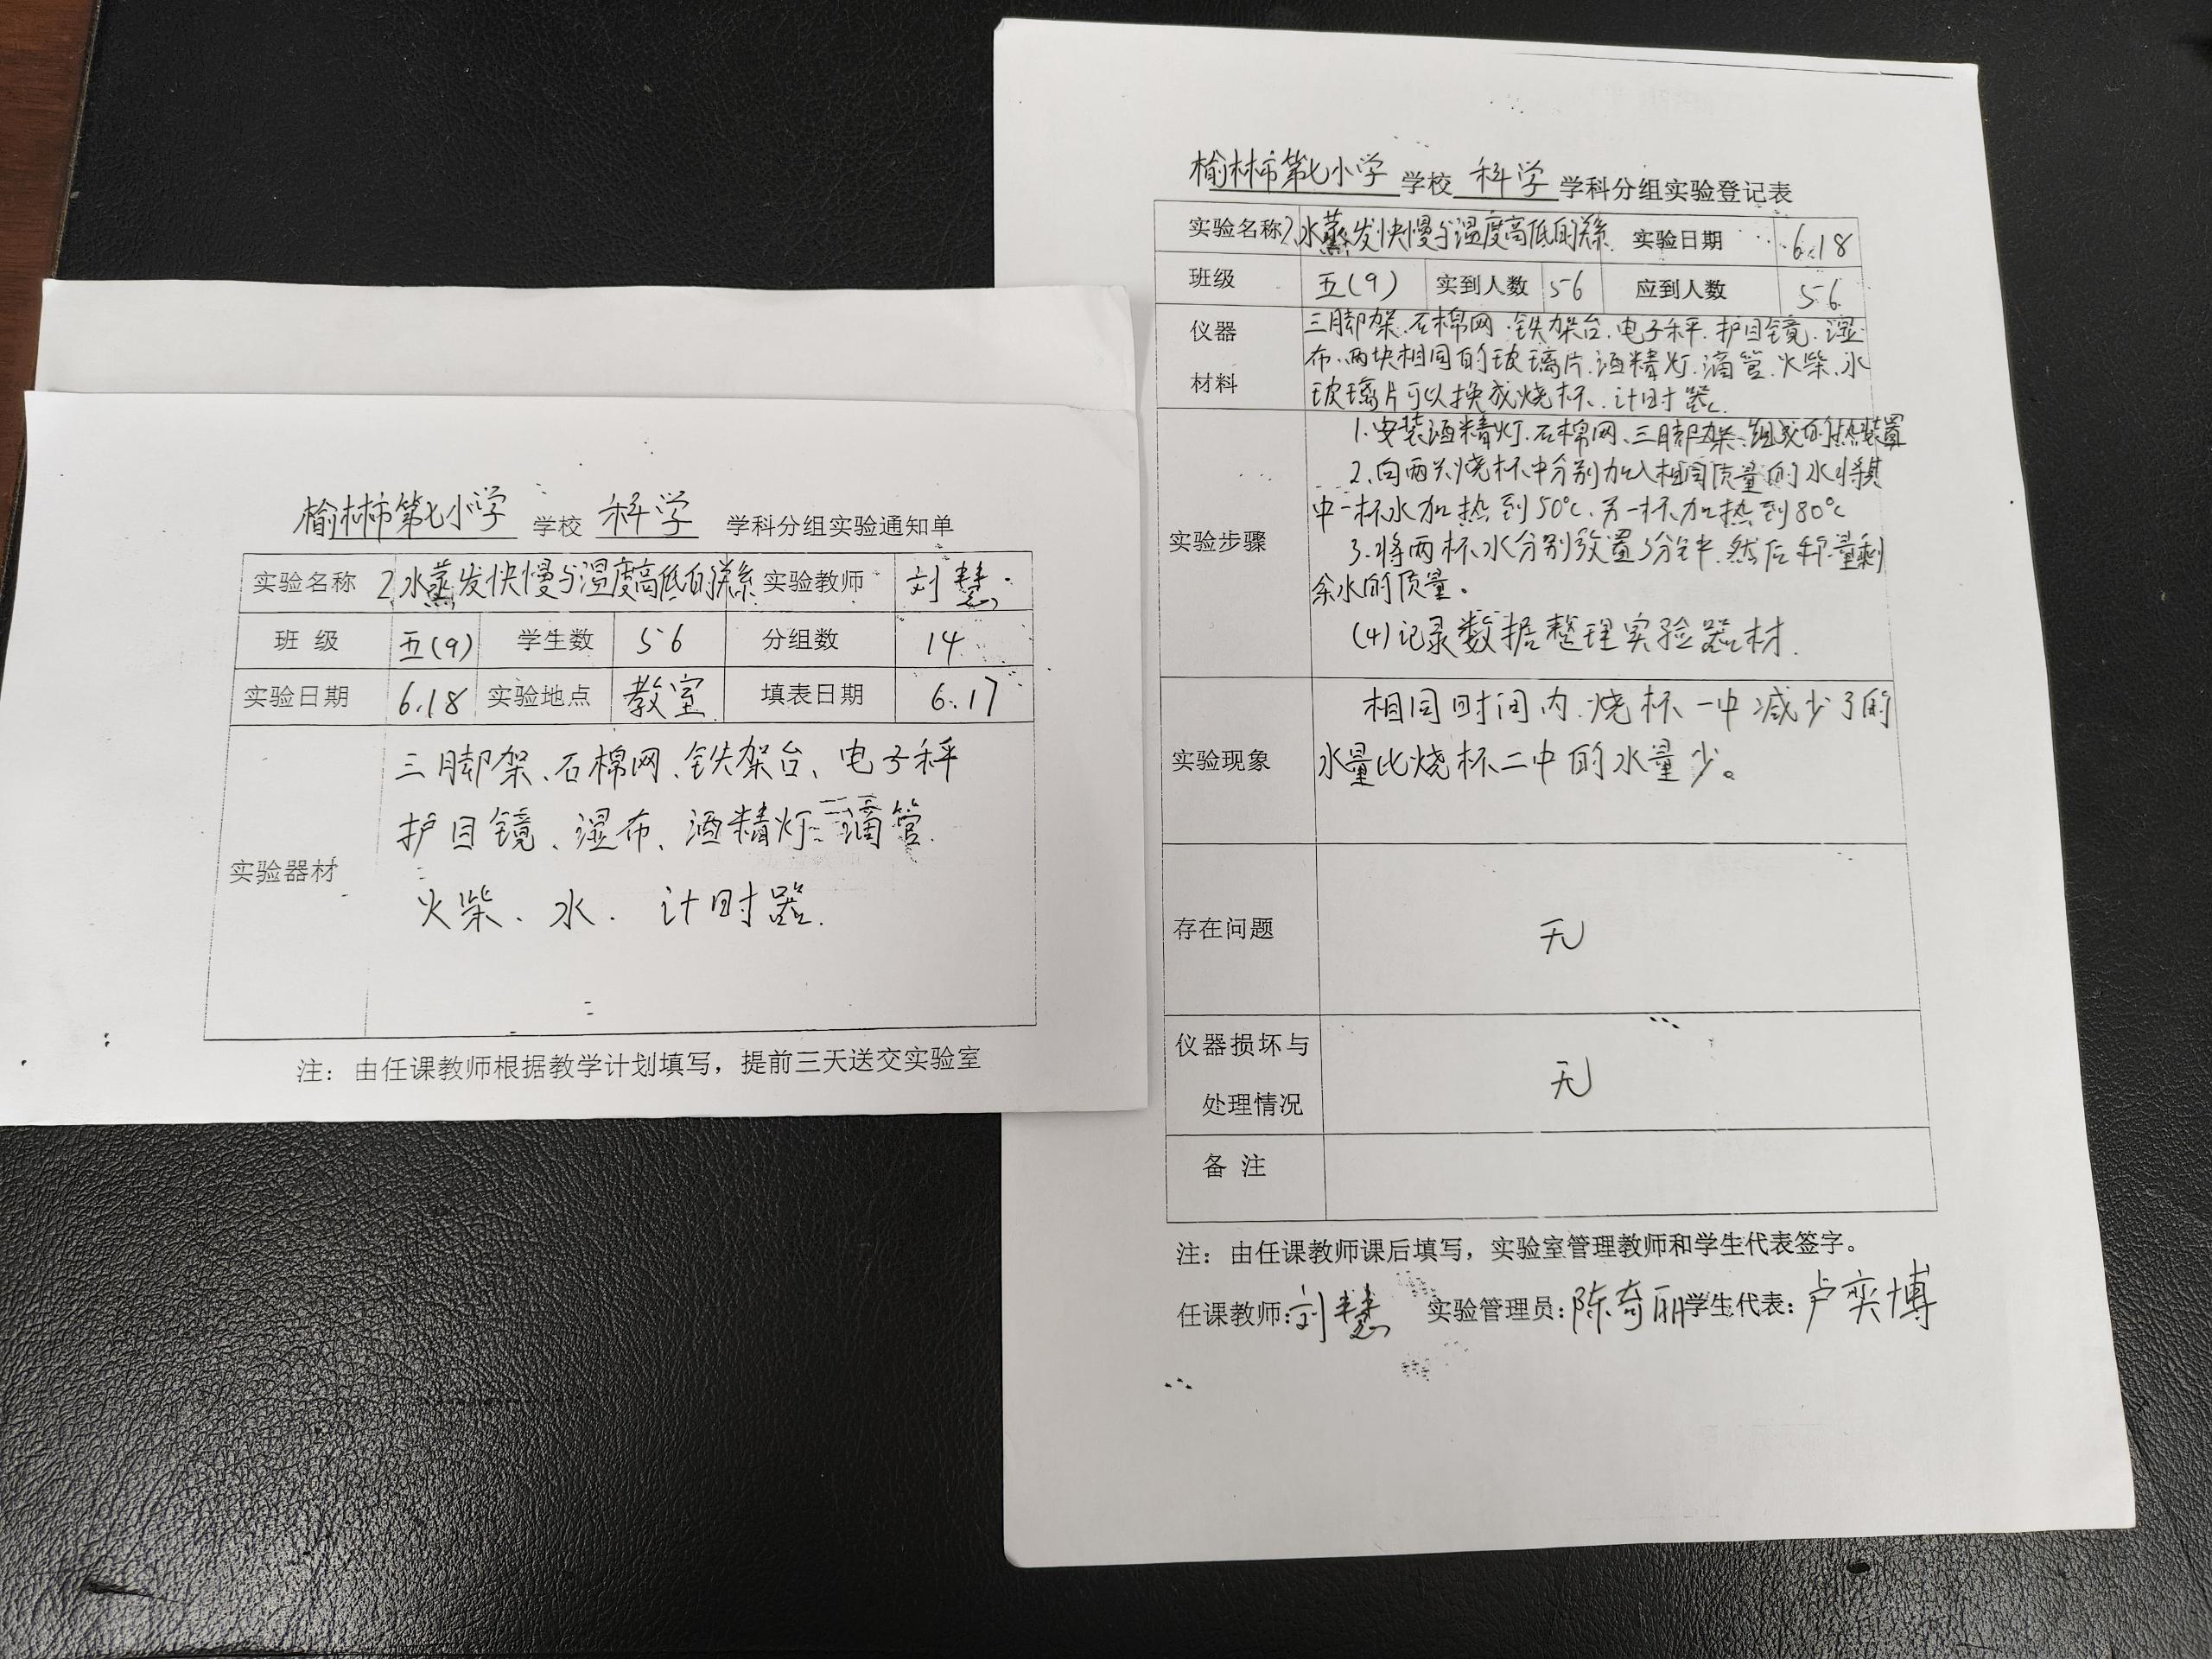 榆林市第七小学 学校 科学 学科分组实验通知单
实验名称 2.水蒸发快慢与温度高低的关系 实验教师 刘慧
班 级 五(9) 学生数 56 分组数 14
实验日期 6.18 实验地点 教室 填表日期 6.17
实验器材
三脚架、石棉网、铁架台、电子秤
护目镜、湿布、酒精灯、滴管.
火柴、水. 计时器.
注：由任课教师根据教学计划填写，提前三天送交实验室
榆林市第七小学 学校 科学 学科分组实验登记表
实验名称 2.水蒸发快慢与温度高低的关系 实验日期 6.18
班级 五(9) 实到人数 56 应到人数 56
仪器材料
三脚架、石棉网、铁架台、电子秤、护目镜、湿
布、两块相同的玻璃片、酒精灯、滴管、火柴、水
玻璃片可以换成烧杯、计时器.
实验步骤
1.安装酒精灯、石棉网、三脚架、组成的加热装置
2.向两只烧杯中分别加入相同质量的水将其
中一杯水加热到50℃.另一杯加热到80℃
3.将两杯水分别放置5分钟.然后称量剩
余水的质量。
(4)记录数据整理实验器材.
实验现象
相同时间内.烧杯一中减少了的
水量比烧杯二中的水量少。
存在问题 无
仪器损坏与处理情况 无
备 注
注：由任课教师课后填写，实验室管理教师和学生代表签字。
任课教师:刘慧 实验管理员:陈奇丽 学生代表:卢奕博